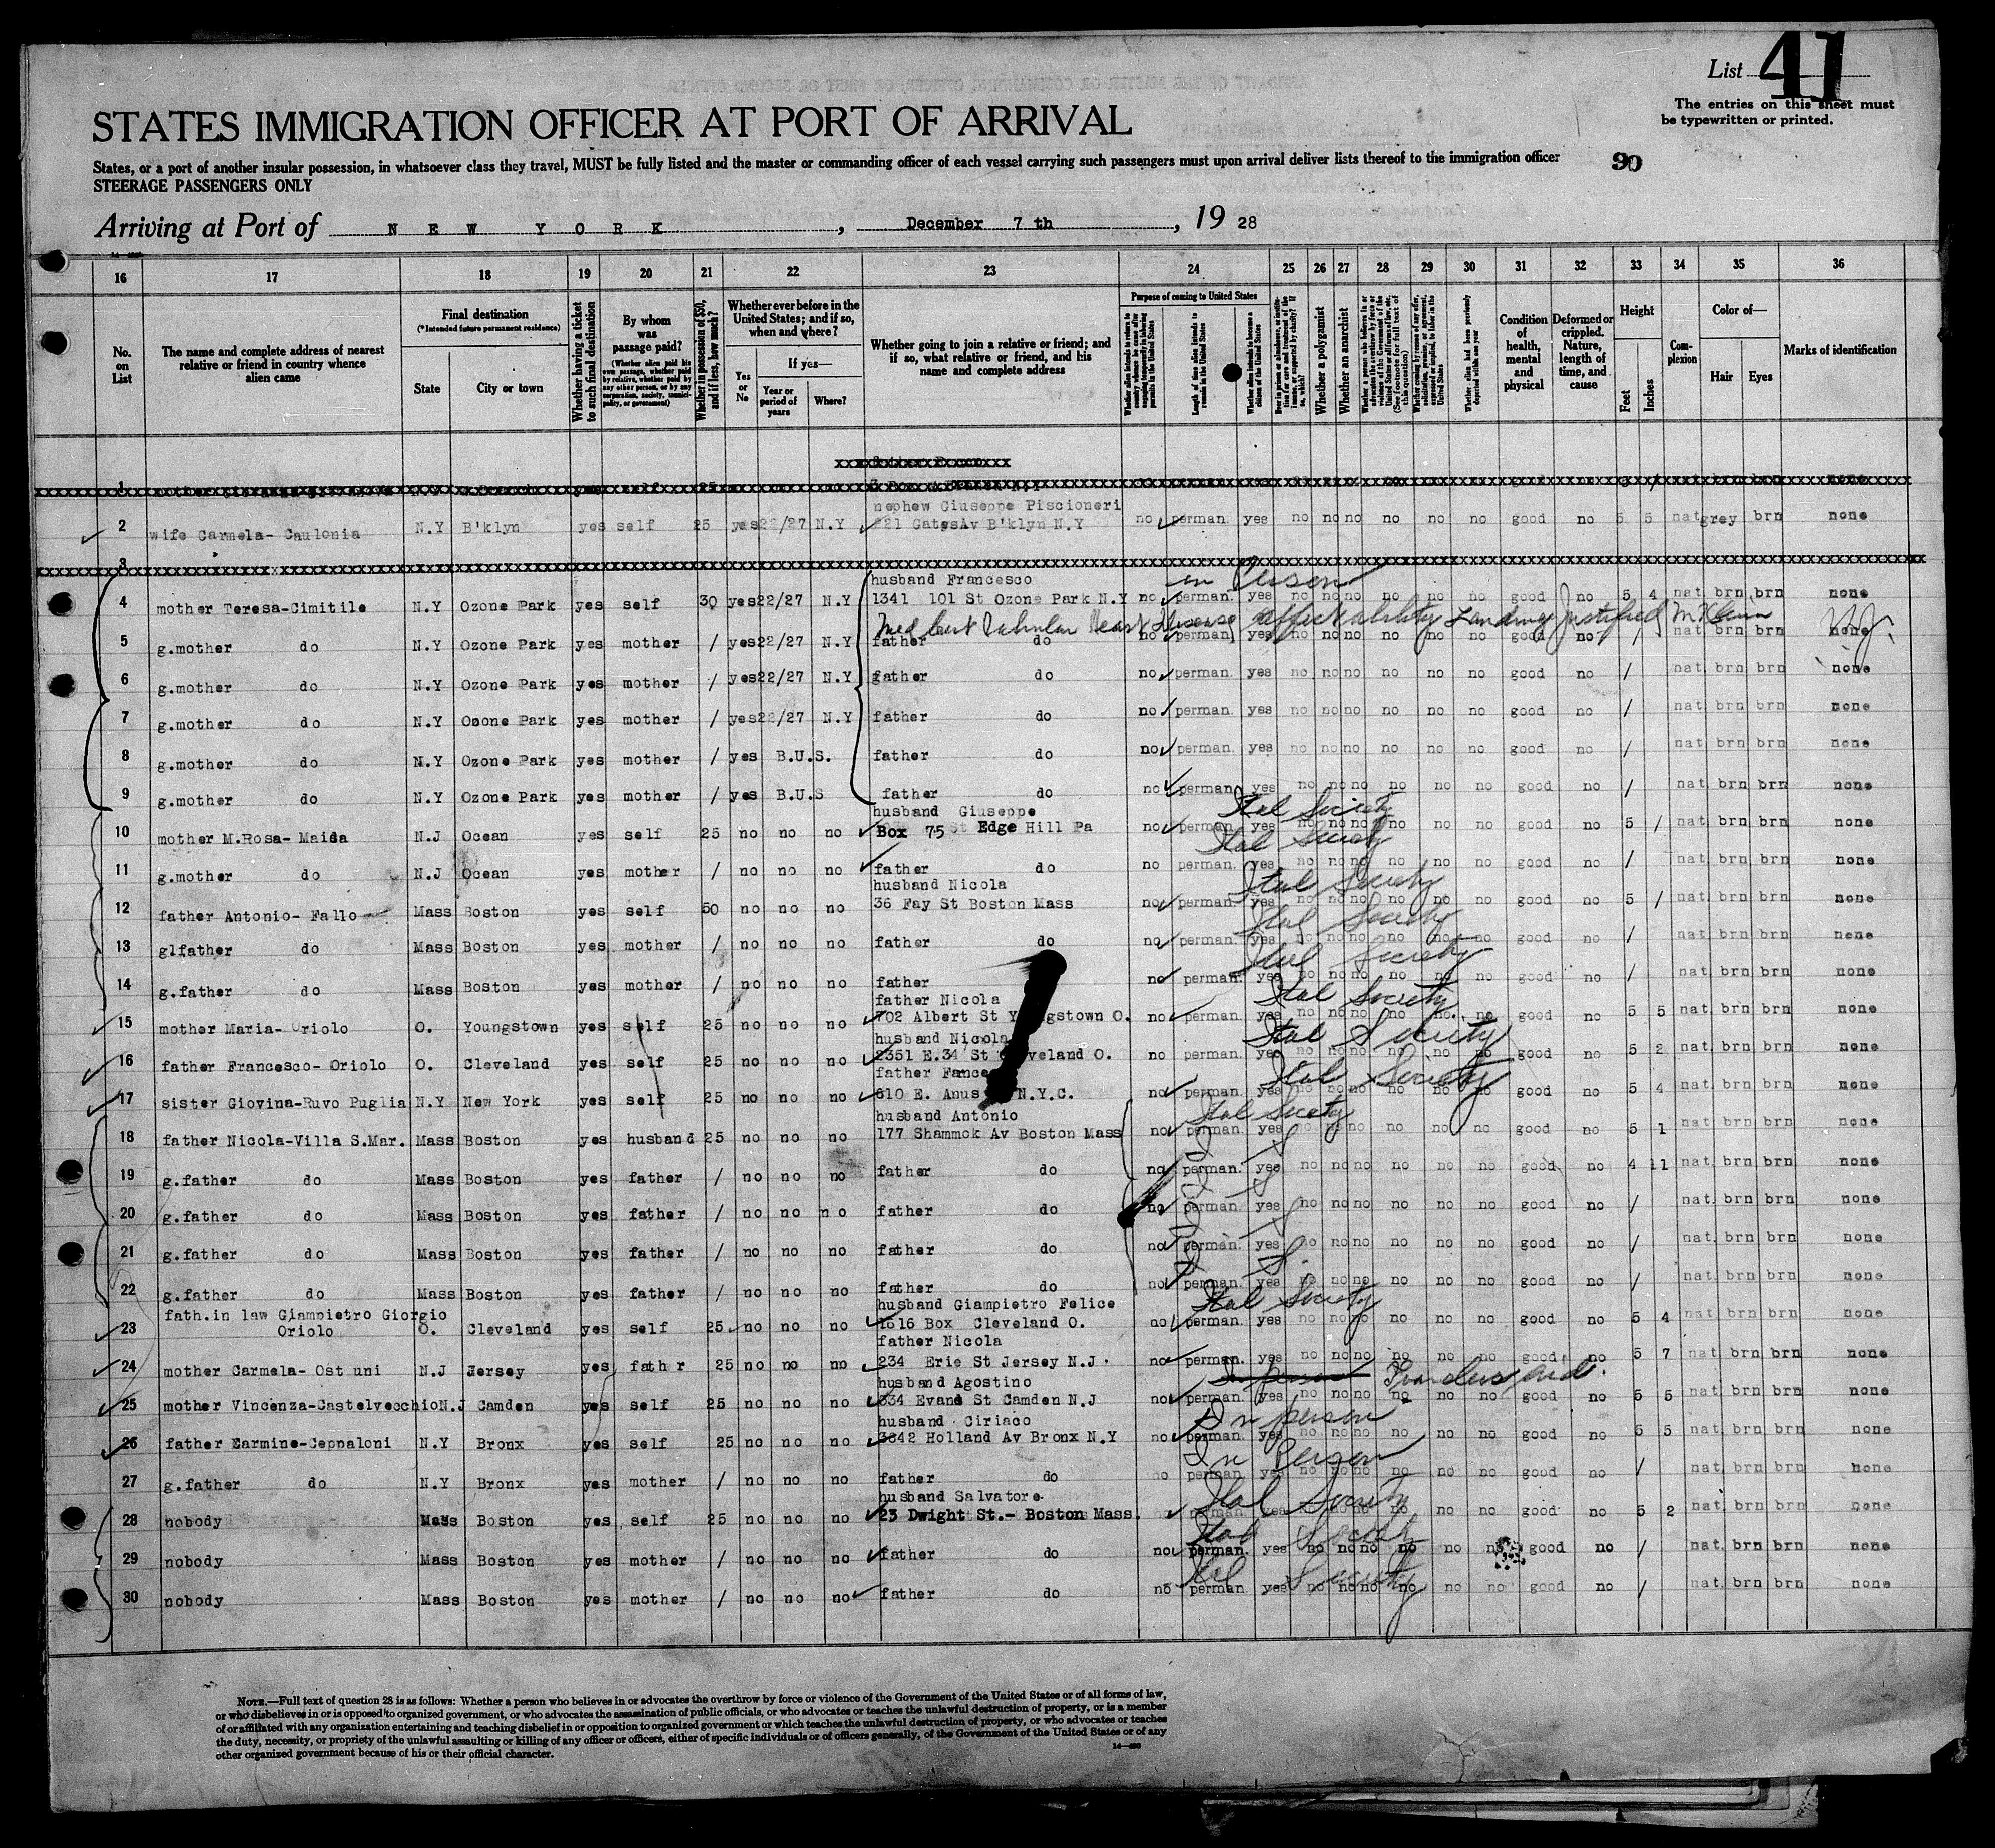 List 41
The entries on this sheet must
be typewritten or printed.
STATES IMMIGRATION OFFICER AT PORT OF ARRIVAL
States, or a port of another insular possession, in whatsoever class they travel, MUST be fully listed and the master or commanding officer of each vessel carrying such passengers must upon arrival deliver lists thereof to the immigration officer
90
STEERAGE PASSENGERS ONLY
Arriving at Port of N E W Y O R K , December 7 th , 19 28
16 17 18 19 20 21 22 23 24 25 26 27 28 29 30 31 32 33 34 35 36
No. on List
The name and complete address of nearest relative or friend in country whence alien came
Final destination
(*Intended future permanent residence)
State
City or town
Whether having a ticket to such final destination
By whom was passage paid?
(Whether alien paid his own passage, whether paid by relative, whether paid by any other person, or by any corporation, society, municipality, or government)
Whether in possession of $50, and if less, how much?
Whether ever before in the United States; and if so, when and where?
Yes or No
If yes—
Year or period of years
Where?
Whether going to join a relative or friend; and if so, what relative or friend, and his name and complete address
Purpose of coming to United States
Length of time alien intends to remain in the United States
Whether a polygamist
Whether an anarchist
Condition of health, mental and physical
Deformed or crippled. Nature, length of time, and cause
Height
Feet
Inches
Complexion
Color of—
Hair
Eyes
Marks of identification
1
nephew Giuseppe Piscioneri
2 wife Carmela- Caulonia N.Y B'klyn yes self 25 yes 22/27 N.Y 221 GatesAv B'klyn N.Y no perman. yes no no no no no no good no 5 5 nat grey brn none
3
husband Francesco in Person
4 mother Teresa-Cimitile N.Y Ozone Park yes self 30 yes 22/27 N.Y 1341 101 St Ozone Park N.Y no perman. yes no no no no no no good no 5 4 nat brn brn none
Med Cert Valvular Heart disease affect ability Landing Justified
5 g.mother do N.Y Ozone Park yes mother / yes 22/27 N.Y father do no perman. yes no no no no no no good no / nat brn brn none
6 g.mother do N.Y Ozone Park yes mother / yes 22/27 N.Y father do no perman. yes no no no no no no good no / nat brn brn none
7 g.mother do N.Y Ozone Park yes mother / yes 22/27 N.Y father do no perman. yes no no no no no no good no / nat brn brn none
8 g.mother do N.Y Ozone Park yes mother / yes B.U.S. father do no perman. yes no no no no no no good no / nat brn brn none
9 g.mother do N.Y Ozone Park yes mother / yes B.U.S father do no perman. yes no no no no no no good no / nat brn brn none
husband Giuseppe Ital Society
10 mother M.Rosa- Maida N.J Ocean yes self 25 no no no Box 75 Edge Hill Pa no perman. yes no no no no no no good no 5 / nat brn brn none
Ital Society
11 g.mother do N.J Ocean yes mother / no no no father do no perman. yes no no no no no no good no / nat brn brn none
husband Nicola Ital Society
12 father Antonio- Fallo Mass Boston yes self 50 no no no 36 Fay St Boston Mass no perman. yes no no no no no no good no 5 / nat brn brn none
Ital Society
13 glfather do Mass Boston yes mother / no no no father do no perman. yes no no no no no no good no / nat brn brn none
Ital Society
14 g.father do Mass Boston yes mother / no no no father no perman. yes no no no no no no good no / nat brn brn none
father Nicola Ital Society
15 mother Maria- Oriolo O. Youngstown yes self 25 no no no 702 Albert St Y ngstown O. no perman. yes no no no no no no good no 5 5 nat brn brn none
husband Nicola Ital Society
16 father Francesco- Oriolo O. Cleveland yes self 25 no no no 2351 E.34 St veland O. no perman. yes no no no no no no good no 5 2 nat brn brn none
father Ital Society
17 sister Giovina-Ruvo Puglia N.Y New York yes self 25 no no no 610 E. N.Y.C. no perman. yes no no no no no no good no 5 4 nat brn brn none
husband Antonio Ital Society
18 father Nicola-Villa S.Mar. Mass Boston yes husband 25 no no no 177 Shammok Av Boston Mass no perman. yes no no no no no no good no 5 1 nat brn brn none
I S
19 g.father do Mass Boston yes father / no no no father do no perman. yes no no no no no no good no 4 11 nat brn brn none
I S
20 g.father do Mass Boston yes father / no no n o father do no perman. yes no no no no no no good no / nat brn brn none
I S
21 g.father do Mass Boston yes father / no no no father do no perman. yes no no no no no no good no / nat brn brn none
I S.
22 g.father do Mass Boston yes father / no no no father do no perman. yes no no no no no no good no / nat brn brn none
fath.in law Giampietro Giorgio husband Giampietro Felice Ital Society
23 Oriolo O. Cleveland yes self 25 no no no 1616 Box Cleveland O. no perman. yes no no no no no no good no 5 4 nat brn brn none
father Nicola
24 mother Carmela- Ost uni N.J Jersey yes fath r 25 no no no 234 Erie St Jersey N.J. no perman. yes no no no no no no good no 5 7 nat brn brn none
husband Agostino In person Travelers aid.
25 mother Vincenza-Castelvecchio N.J Camden yes self 25 no no no 834 Evans St Camden N.J no perman. yes no no no no no no good no 5 5 nat brn brn none
husband Ciriaco In person
26 father Earmine-Ceppaloni N.Y Bronx yes self 25 no no no 3642 Holland Av Bronx N.Y no perman. yes no no no no no no good no 5 5 nat brn brn none
In Person
27 g.father do N.Y Bronx yes mother / no no no father do no perman. yes no no no no no no good no / nat brn brn none
husband Salvatore Ital Society
28 nobody Mass Boston yes self 25 no no no 23 Dwight St.- Boston Mass. perman. yes no no no no no no good no 5 2 nat brn brn none
Ital Society
29 nobody Mass Boston yes mother / no no no father do no perman. yes no no no no no no good no / nat brn brn none
Ital Society
30 nobody Mass Boston yes mother / no no no father do no perman yes no no no no no no good no / nat brn brn none
NOTE.—Full text of question 28 is as follows: Whether a person who believes in or advocates the overthrow by force or violence of the Government of the United States or of all forms of law,
or who disbelieves in or is opposed to organized government, or who advocates the assassination of public officials, or who advocates or teaches the unlawful destruction of property, or is a member
of or affiliated with any organization entertaining and teaching disbelief in or opposition to organized government or which teaches the unlawful destruction of property, or who advocates or teaches
the duty, necessity, or propriety of the unlawful assaulting or killing of any officer or officers, either of specific individuals or of officers generally, of the Government of the United States or of any
other organized government because of his or their official character.